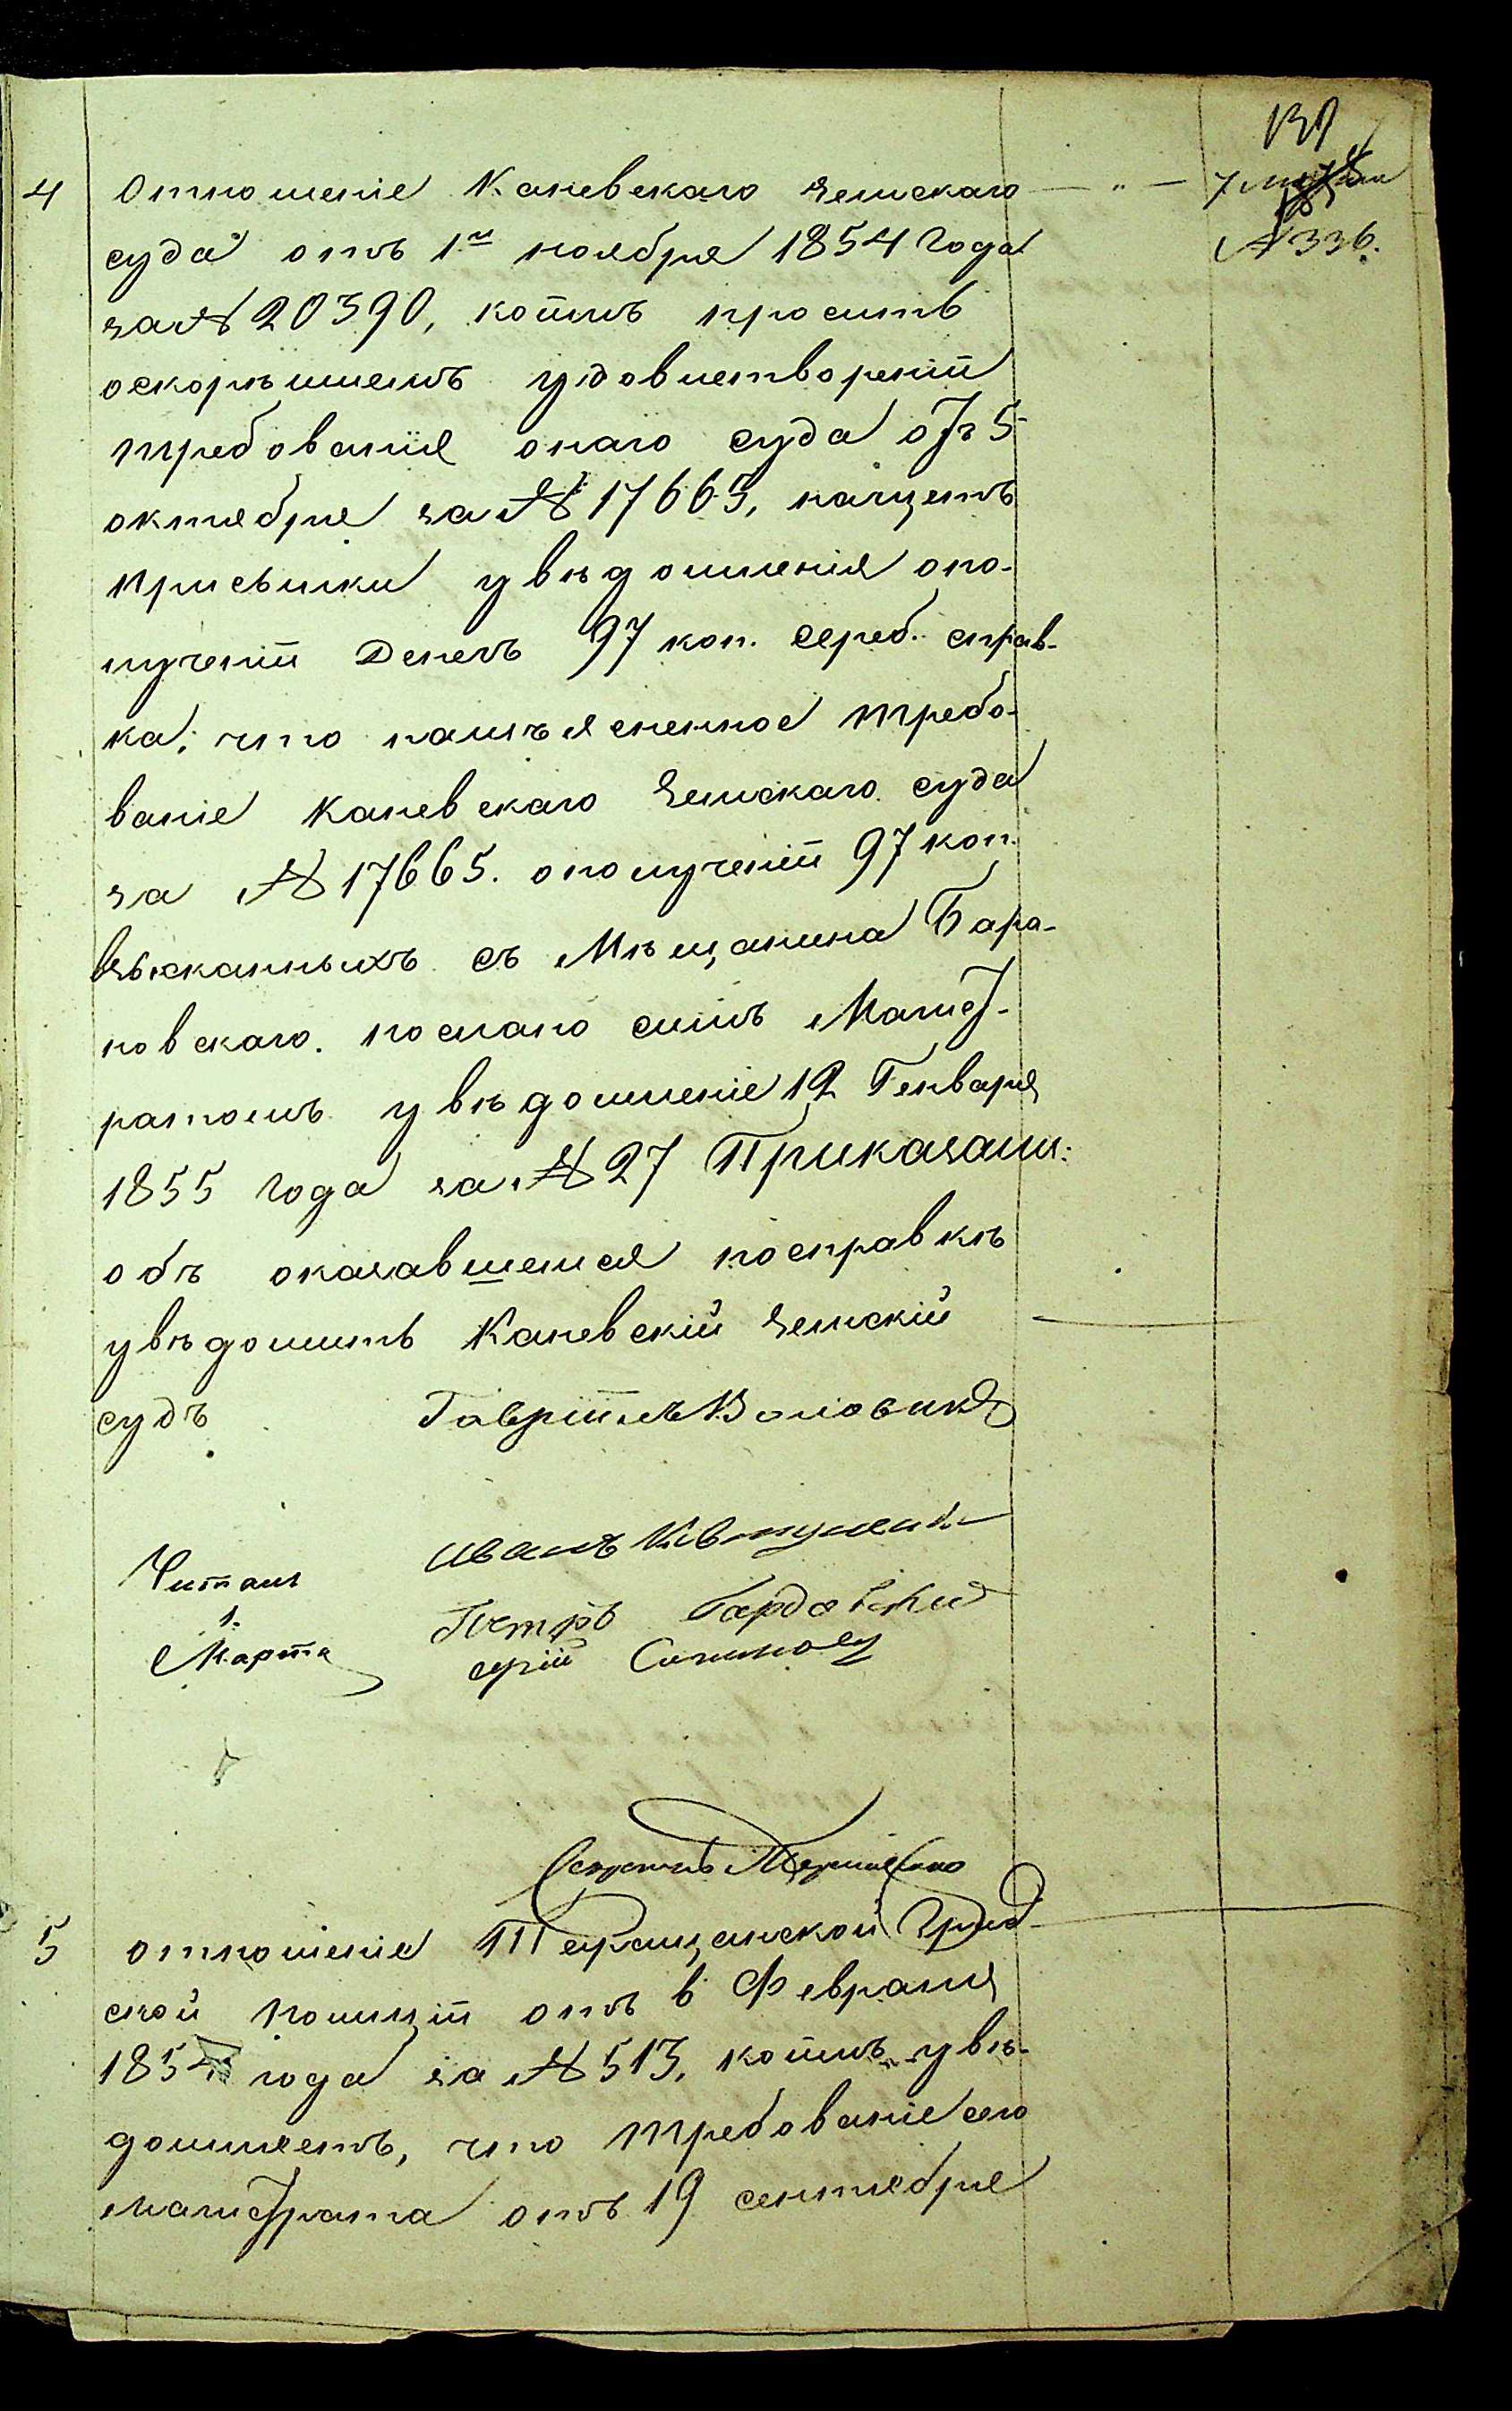 4 Отношеніе Каневскаго земскаго — „ —
суда отъ 1го ноября 1854 года
№ 336.
за № 20390, коимъ проситъ
оскорѣишемъ удовлетвореніи
требованія онаго суда отъ 5
октября за № 17665, насчетъ
присылки увѣдомленія опо-
лученіи Денегъ 97 коп. сереб. справ-
ка: что
требо-
ваніе Каневскаго Земскаго суда
за № 17665. ополученіи 97 коп.
взысканныхъ съ Мѣщанина Бара-
новскаго. послано симъ Магист-
ратомъ увѣдомленіе 12 Генваря
1855 года за № 27 Приказали:
объ оказавшемся посправкѣ
увѣдомить Каневскій земскій
судъ
Гавріилъ Воловикъ
Иванъ
Читалъ
1.
Марта
Петръ
Секретарь
5 отношеніе Таращанской Град-
ской полиціи отъ 6 Февраля
185 года за № 513, коимъ увѣ-
домляетъ, что требованіе сего
магистрата отъ 19 сентября